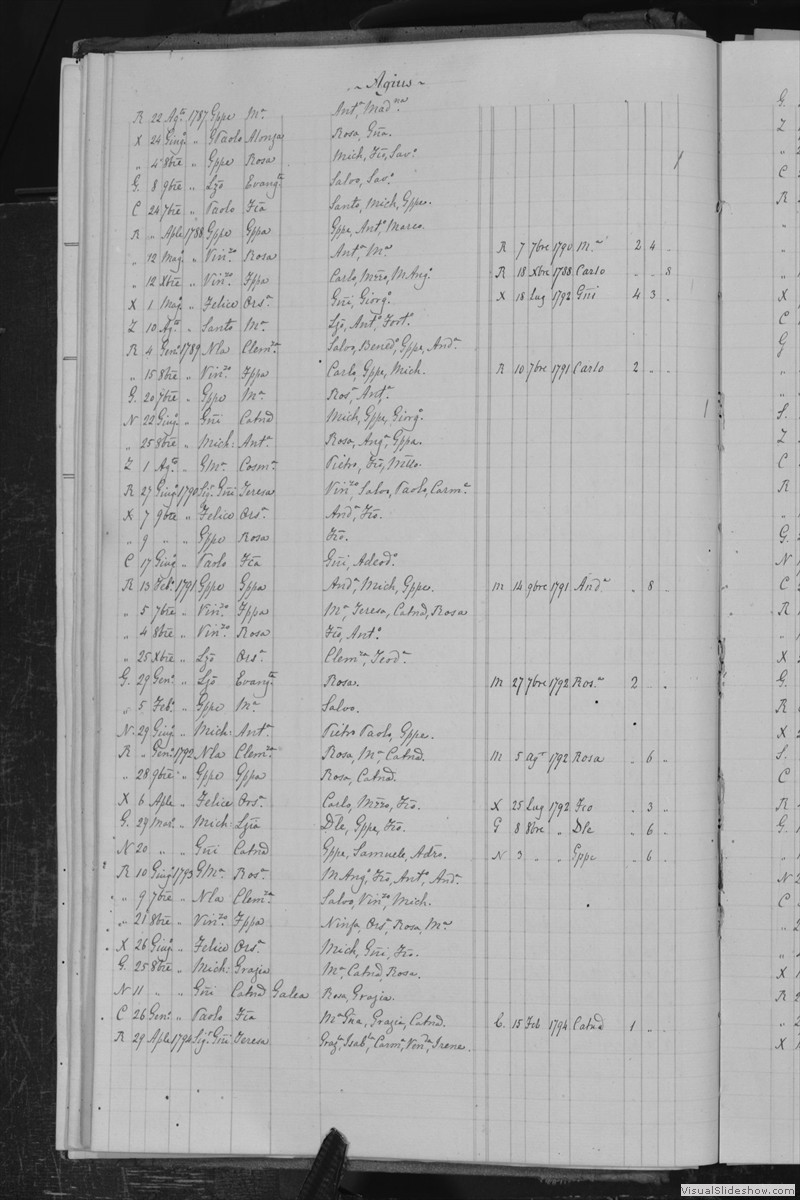 ~ Agius ~
R 22 Agto 1787 Gppe Ma Anta, Madna
X 24 Giugo „ GPaolo Alonza Rosa, Gña.
„ 4 8bre „ Gppe Rosa Mich, Fco, Savo
G. 8 9bre „ Lzo Evangta Salvo, Savo
C 24 7bre „ Paolo Fca Santo, Mich, Gppe.
R „ Aple 1788 Gppe Gppa Gppe, Anto, Marco.
„ 12 Mago „ Vinzo Rosa Anta, Ma R 7 7bre 1790 Ma 2 4 „
„ 12 Xbre „ Vinzo Fppa Carlo, Mzzo, MAngo R 18 Xbre 1788 Carlo „ „ 8
X 1 Mago „ Felice Orsa Gñi, Giorgo X 18 Lug 1792 Gñi 4 3 „
Z 10 Agto „ Santo Ma Lzo, Anto, Forto
R 4 Geno 1789 Nla Clemza Salvo, Benedo, Gppe, Anda
„ 15 8bre „ Vinzo Fppa Carlo, Gppe, Mich. R 10 7bre 1791 Carlo 2 „ „
G. 20 7bre „ Gppe Ma Rosa, Anta
N 22 Giugo „ Gñi Catnd Mich, Gppe, Giorgo
„ 25 8bre „ Mich: Anta Rosa, Anga, Gppa.
Z 1 Agto „ GMa Cosma Pietro, Fco,
R 27 Giugo 1790 Sigr Gñi Teresa Vinzo, Salvo, Paolo, Carma
X 7 9bre „ Felice Orsa Anda, Fco.
„ 9 „ „ Gppe Rosa Fco.
C 17 Giugo „ Paolo Fca Gñi, Adeodo
R 13 Febo 1791 Gppe Gppa Anda, Mich, Gppe. M 14 9bre 1791 Anda „ 8 „
„ 5 7bre „ Vinzo Fppa Ma, Teresa, Catnd, Rosa
„ 4 8bre „ Vinzo Rosa Fco, Anto
„ 25 Xbre „ Lzo Orsa Clemza, Teoda
G. 29 Geno „ Lzo Evangta Rosa. M 27 7bre 1792 Rosa 2 „ „
„ 5 Febo „ Gppe Ma Salvo.
N. 29 Giugo „ Mich: Anta Pietro Paolo, Gppe.
R „ Geno 1792 Nla Clemza Rosa, Ma Catnd. M 5 Agto 1792 Rosa „ 6 „
„ 28 9bre „ Gppe Gppa Rosa, Catnd.
X 6 Aple „ Felice Orsa Carlo, Mzzo, Fco. X 25 Lug 1792 Fco „ 3 „
G. 29 Maro „ Mich: Lzia Dle, Gppe, Fco. G 8 8bre „ Dle „ 6 „
N 20 „ „ Gñi Catnd Gppe, Samuele, Adro. N 3 „ „ Gppe „ 6 „
R 10 Giugo 1793 GMa Rosa MAngo, Fco, Anto, Anda
„ 9 7bre „ Nla Clemza Salvo, Vinzo, Mich.
„ 21 8bre „ Vinzo Fppa Ninfa, Orsa, Rosa, Ma
X 26 Giugo „ Felice Orsa Mich, Gñi, Fco.
G. 25 8bre „ Mich: Grazia Ma, Catnd, Rosa.
N 11 „ „ Gñi Catnd Galea Rosa, Grazia.
C 26 Geno „ Paolo Fca Ma Gña, Grazia, Catnd. C. 15 Feb 1794 Catnd 1 „ „
R 29 Aple 1794 Sigr Gñi Teresa Graza, Isabla, Carma, Venda, Irene.
VisualSlideshow.com